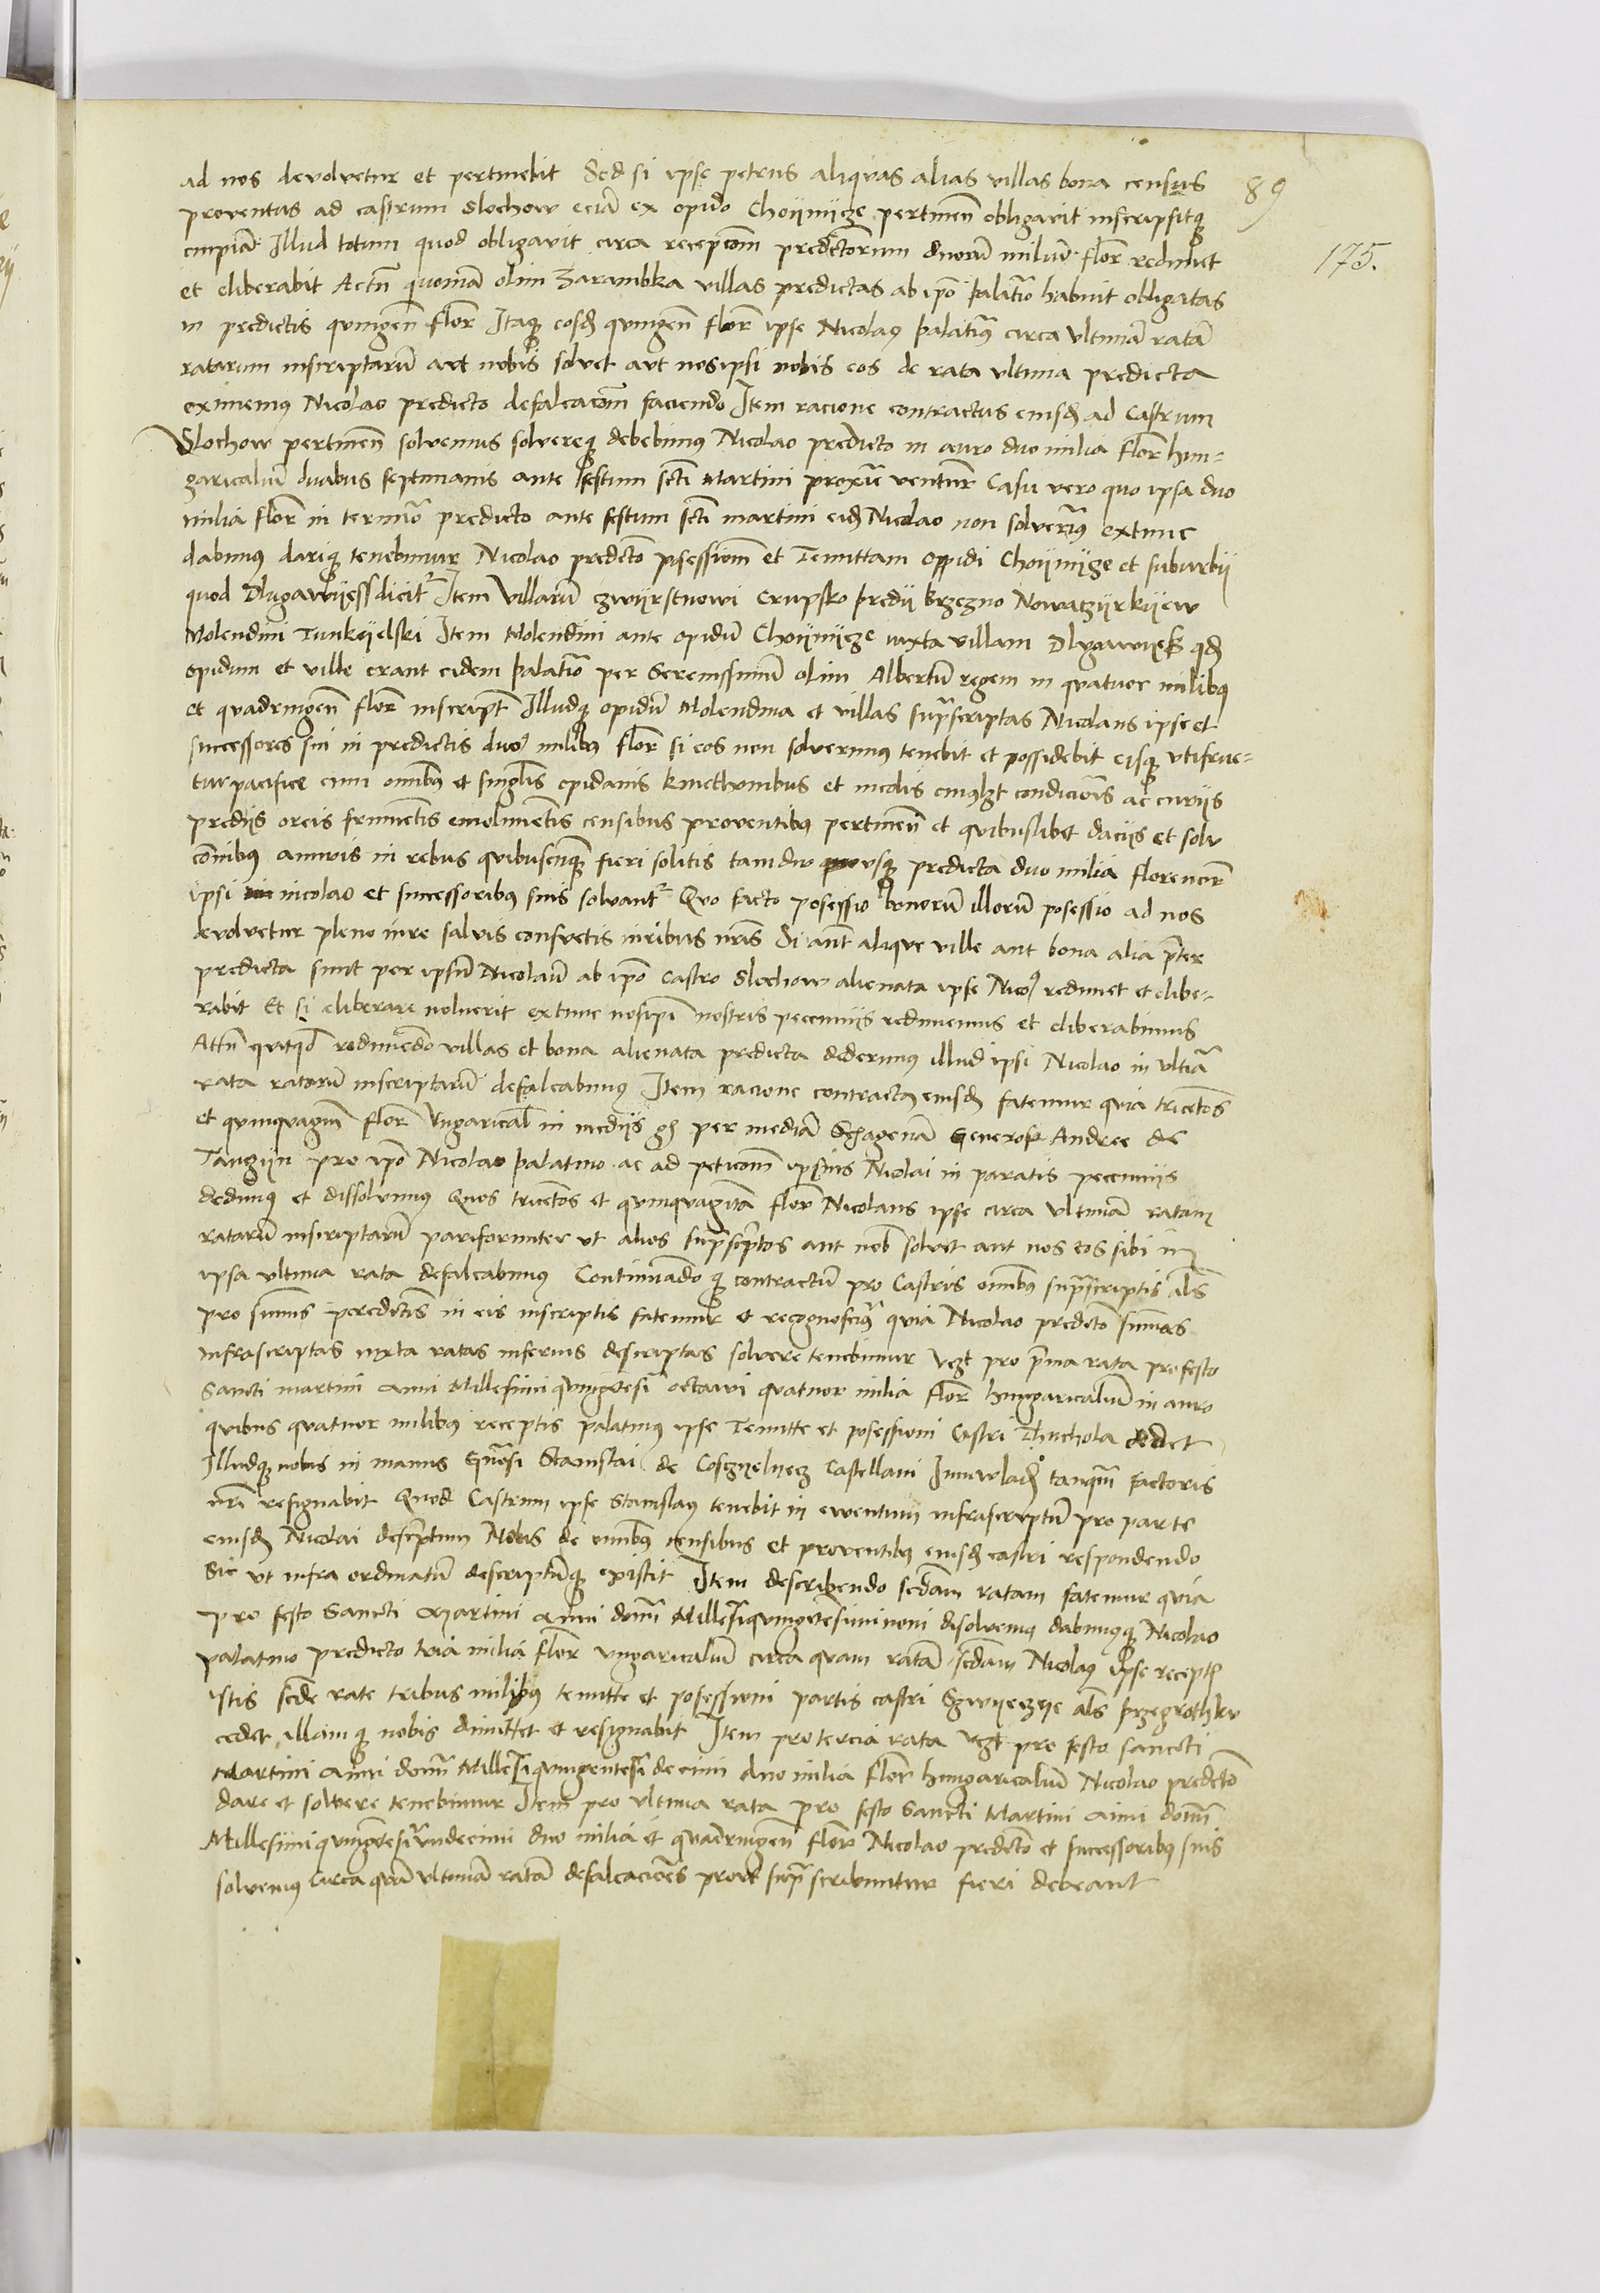 ad nos devolvetur et pertinebit Sed si ipse petrus aliquas alias villas bona census
89
proventus ad castrum Slochow eciam ex opido Choijnijcze pertinen obligavit inscripsitq
cuipiam Illud totum quod obligavit circa recepcom predictorum duorum milium flor redimet
175.
et eliberabit Actn quoniam olim Zarambka villas predictas ab ipso palatino habuit obligatas
in predictis quingen flor Itaq eosd quingen flor ipse Nicolaus palatinus circa ultimam ratam
ratarum inscriptarum aut nobis solvet aut nos ipsi nobis eos de rata ultima predicta
eximemus Nicolao predicto defalcacom faciendo Item racione contractus eiusd ad Castrum
Slochow pertinen solvemus solvereq debebimus Nicolao predicto in auro duo milia flor hun-
garicalium duabus septimanis ante festum scti Martini proxime ventur Casu vero quo ipsa duo
milia flor in termino predicto ante festum scti martini eid Nicolao non solverimus extunc
dabimus dariq tenebimur Nicolao predicto posessionem et Tenuttam oppidi Choijnijcze et suburbij
quod Dlugawijess dicitr Item villarum czwijrstnowi Crupsko predij brzezno Nowaczijrkijew
Molendini Tunkijelski Item Molendini ante opidum Choijnijcze iuxta villam Dlugawijes qd
opidum et ville erant eidem palatino per Serenissimum olim Albertum regem in quatuor milibus
et quadringen flor inscript Illudq opidum Molendina et villas suprascriptas Nicolaus ipse et
successores sui in predictis duo milibus flor si eos non solverimus tenebit et possidebit eisq utifrue-
tur pacifice cum omnibus et singulis opidanis kmethonibus et incolis cuiuslibet condicionis ac curijs
predijs oreis frumentis emolumentis censibus proventibus pertinen et quibuslibet dacijs et solu
comibus annuis in rebus quibuscunq fieri solitis tamdiu quousq predicta duo milia florenor
ipsi nicolao et successoribus suis solvantr Quo facto posessio bonorum illorum posessio ad nos
devolvetur pleno iure salvis consuetis iuribus nris Si aut alique ville aut bona alia preter
predicta sunt per ipsum Nicolaum ab ipso castro Slochow alienata ipse Nico redimet et elibe-
rabit Et si eliberare noluerit extunc nosipsi nostris pecunijs redimemus et eliberabimus
Attn quitqd redimendo villas et bona alienata predicta dederimus illud ipsi Nicolao in ultima
rata ratarum inscriptarum defalcabimus Item racione contractus eiusd fatemur quia tricentos
et quinquagin flor Ungarical in medijs gs per mediam Sexagenam Generosi Andree de
Tanzijn pro ipso Nicolao palatino ac ad peticom ipsius Nicolai in paratis pecunijs
dedimus et dissolvimus Quos tricentos et quinquaginta flor Nicolaus ipse circa ultimam ratam
ratarum inscriptarum pariformiter ut alios suprascriptos aut nob solvet aut nos eos sibi in
ipsa ultima rata defalcabimus Continuando q contractum pro Castris omnibus suprascriptis als
pro summis predictis in eis inscriptis fatemur et recognoscimus quia Nicolao predicto summas
infrascriptas iuxta ratas inferius descriptas solvere tenebimur vczt pro prima rata pro festo
Sancti martini anni Millesimi quingentesimi octavi quatuor milia flor hungaricalium in auro
quibus quatuor milibus receptis palatinus ipse Tenutte et posessioni Castri Thuchola cedet
Illudq nobis in manus Gnosi Stanislai de Coscyelyecz Castellani Inuwladz tanquam factoris
nri resignabit Quod Castrum ipse Stanislaus tenebit in eventum infrascriptum pro parte
eiusd Nicolai descriptum Nobis de omnibus censibus et proventibus eiusd castri respondendo
Sic ut infra ordinatum descriptumq existit Item describendo secdam ratam fatemur quia
pro festo Sancti Martini anni domi Millesi quingentesimi noni disolvemus dabimusq Nicolao
palatino predicto tria milia flor ungaricalium circa quam ratam secdam Nicolaus ipse recept
istis secde rate tribus milibus tenutte et posessioni partis castri Szwijeczye als przegrothku
cedet illamq nobis dimittet et resignabit Item pro tercia rata vczt pro festo sancti
Martini anni domi Millesi quingentesi decimi duo milia flor hungaricalium Nicolao predicto
dare et solvere tenebimur Item pro ultima rata pro festo Sancti Martini anni domi
Millesimi quingentesimi undecimi duo milia et quadringen flor Nicolao predicto et successoribus suis
solvemus Circa quam ultimam ratam defalcaciones prout supra scribuntur fieri debeant